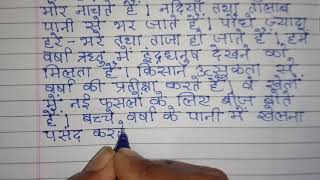 मोर नाचते हैं। नदियाँ तथा तालाब
पानी से भर जाते हैं। पौधे ज्यादा
हरे - भरे तथा ताजा हो जाते हैं। हमें
वर्षा ऋतु में इंद्रधनुष देखने को
मिलता है। किसान उत्सुकता से
वर्षा की प्रतीक्षा करते हैं, वे खेतों
में नई फसलों के लिए बीज बोते
हैं। बच्चे वर्षा के पानी में खेलना
पसंद करते